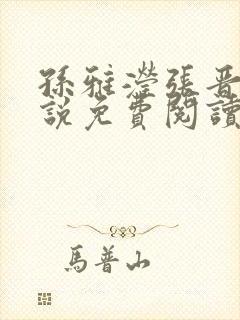 孫雅瀅張晉
說免費閱讀
馬普山